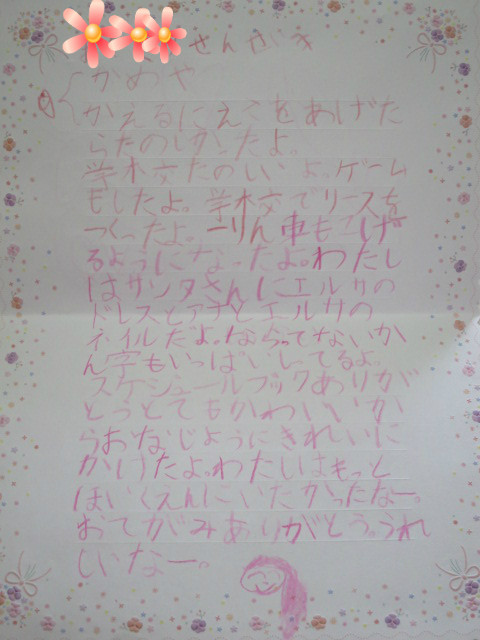 せんがき
かめや
かえるにえさをあげた
らたのしかたよ。
学木交たのしいよ。ゲーム
もしたよ。学木交でリースを
つくったよ。一りん車もこげ
るようになったよ。わたし
はサンタさんにエルサの
ドレスとアナとエルサの
ネイルだよ。ならってないか
ん字もいっぱいしてるよ。
スケジュールブックありが
とうとてもかわいいか
らおなじようにきれいに
かけたよ。わたしはもっと
ほいくえんにいたかったなー。
おてがみありがとう。うれ
しいなー。